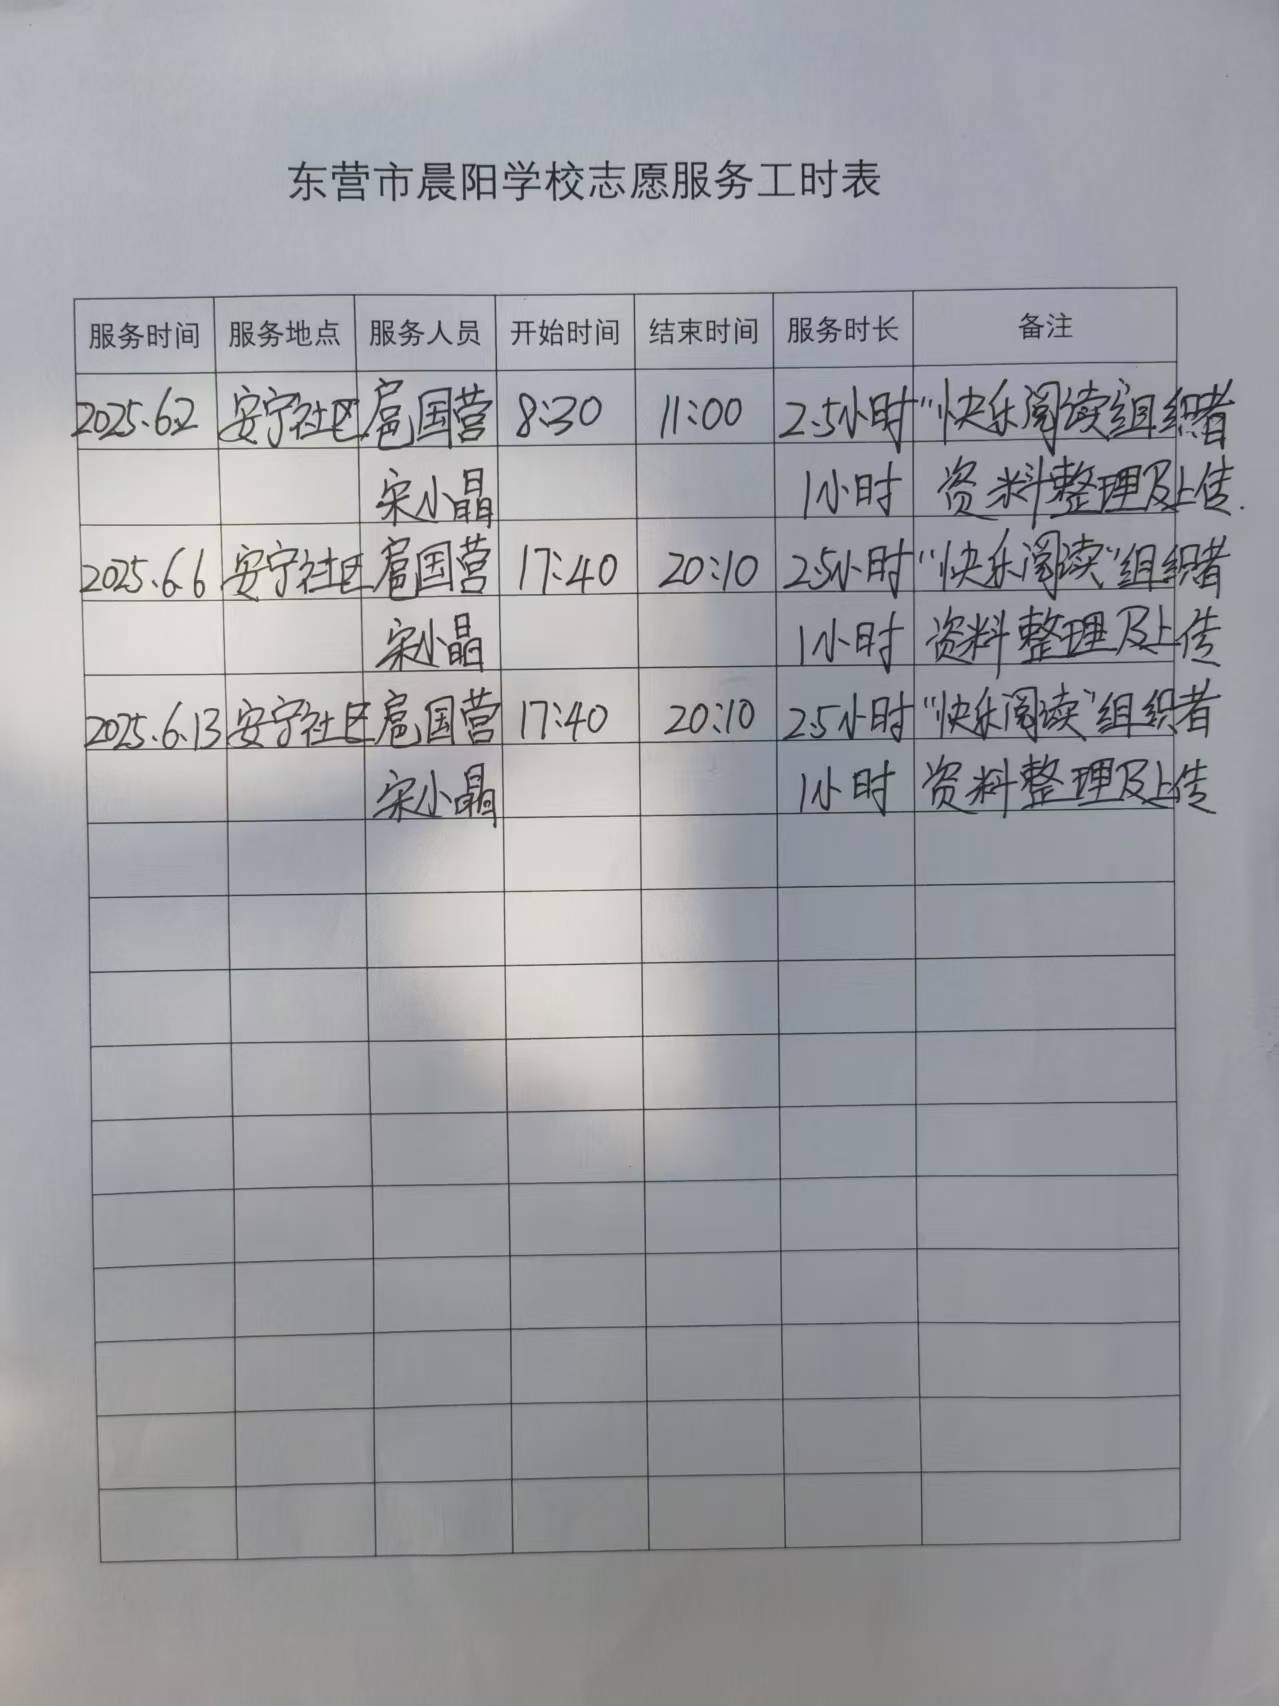 东营市晨阳学校志愿服务工时表
服务时间 服务地点 服务人员 开始时间 结束时间 服务时长 备注
2025.6.2 安宁社区 扈国营 8:30 11:00 2.5小时 "快乐阅读"组织者
宋小晶 1小时 资料整理及上传.
2025.6.6 安宁社区 扈国营 17:40 20:10 2.5小时 "快乐阅读"组织者
宋小晶 1小时 资料整理及上传
2025.6.13 安宁社区 扈国营 17:40 20:10 2.5小时 "快乐阅读"组织者
宋小晶 1小时 资料整理及上传